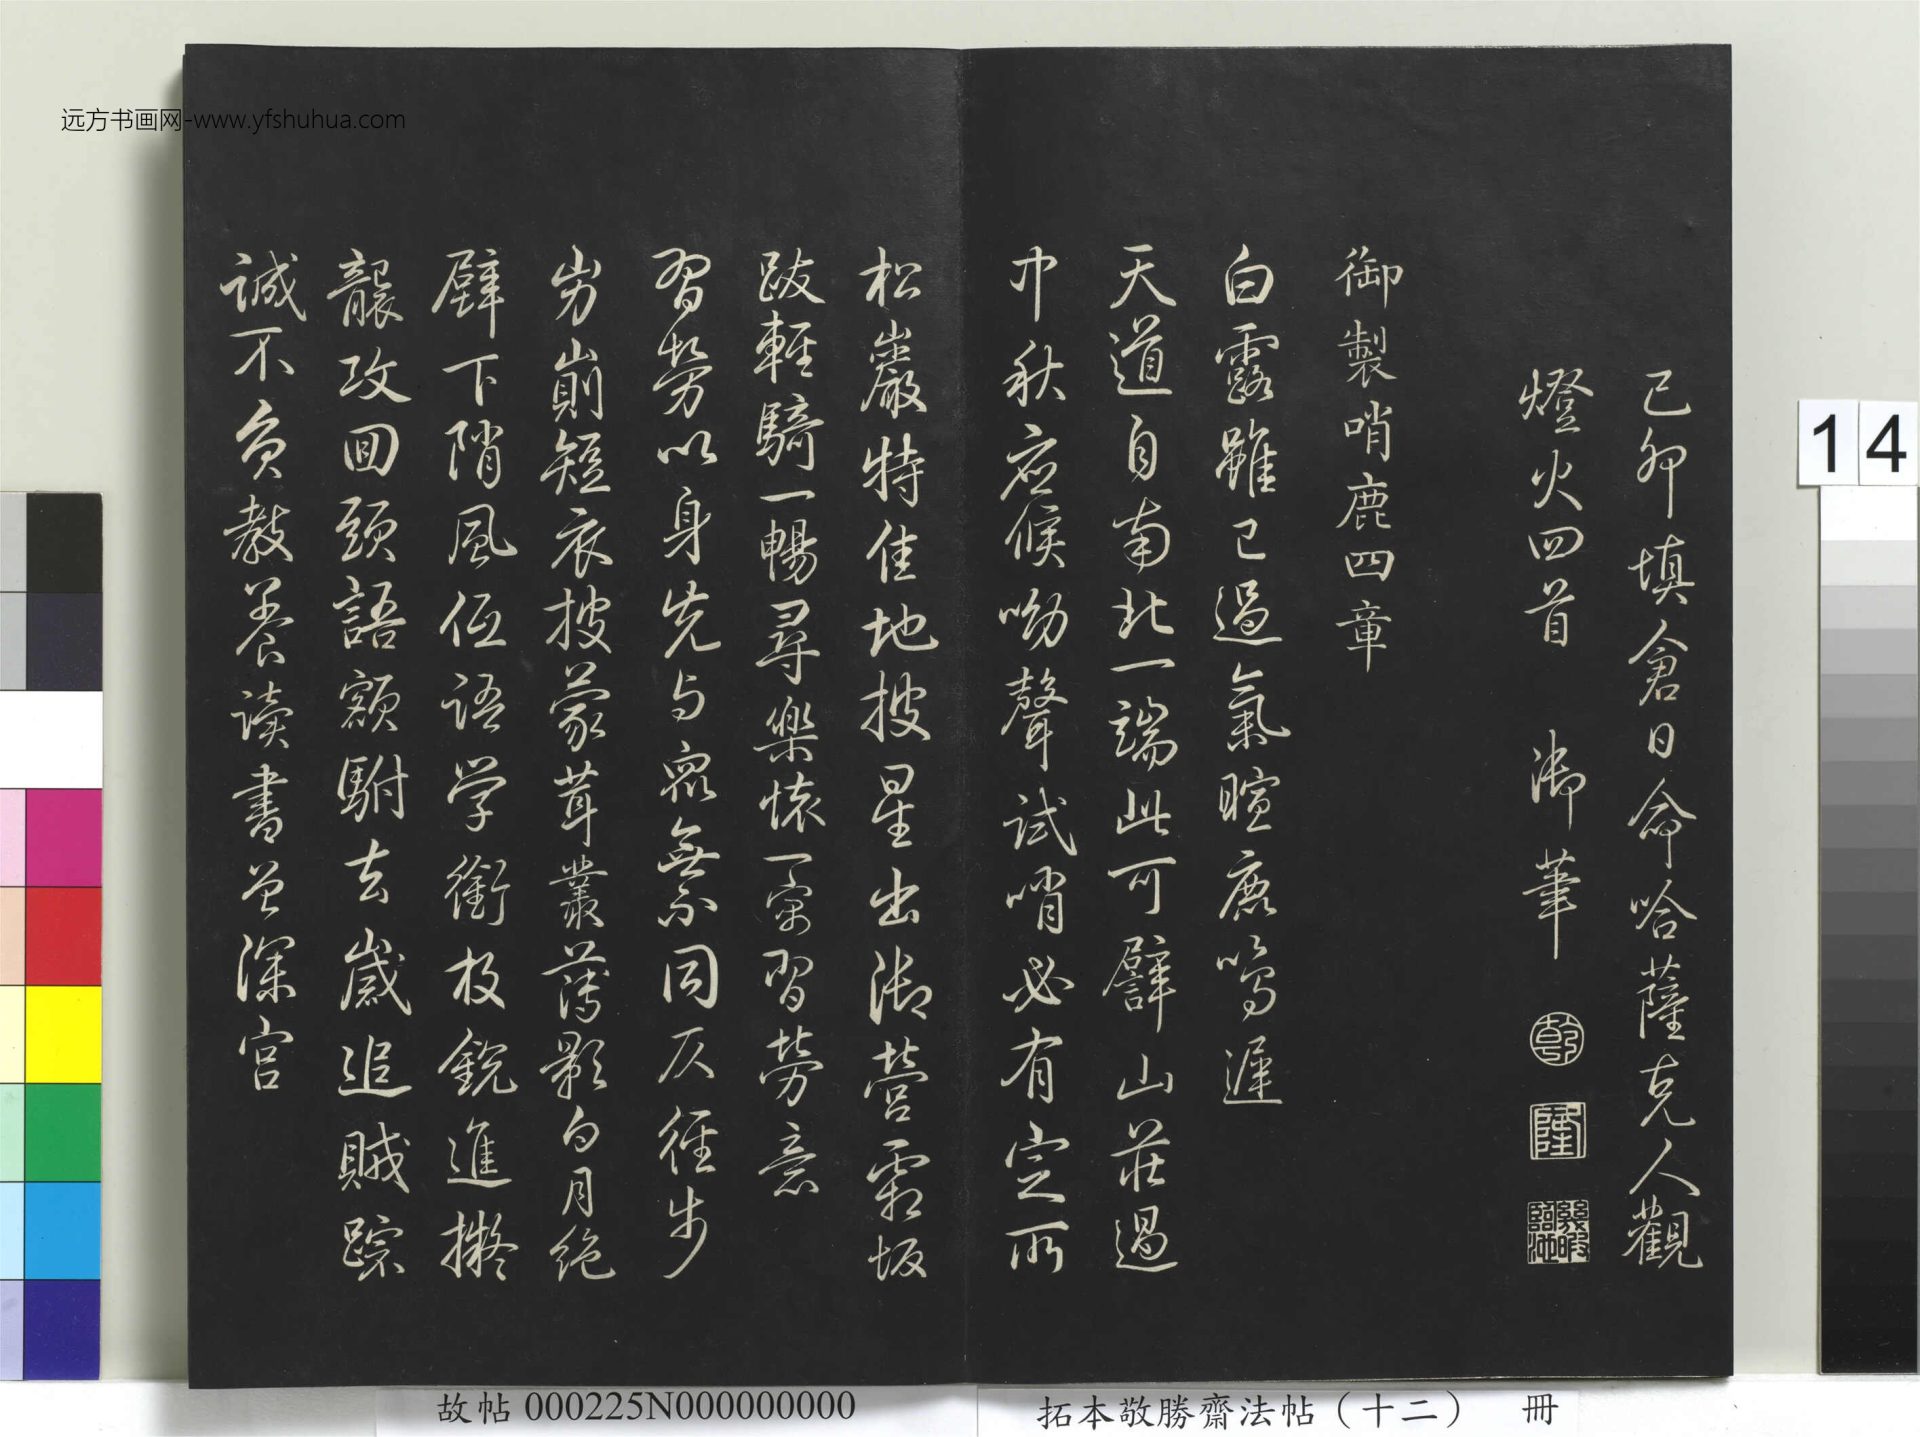 远方书画网-www.yfshuhua.com
己卯填倉日命哈薩克人觀
燈火四首 御筆
乾
隆
幾暇臨池
御製哨鹿四章
白露雖已過氣暄鹿鳴遲
天道自南北一端此可譬山莊過
中秋应候呦聲試哨必有定所
松巖特佳地披星出御营霜坂
跋輕騎一暢尋樂懷一寓習劳意
習劳以身先与众無不同仄徑步
屴崱短衣披蒙茸叢薄影白月绝
壁下陗風低語学銜枚銳進擬
襲攻囬頭語額駙去歲追賊踪
誠不負教养读書曾深宫
14
故帖 000225N000000000
拓本敬勝齋法帖（十二） 冊